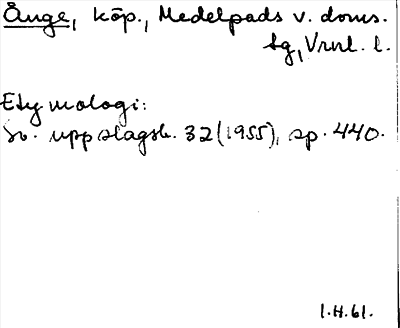 Ånge, köp., Medelpads v. doms.
tg, Vrnl. l.
Etymologi:
Sv. uppslagsb. 32 (1955), sp. 440.
1.H.61.